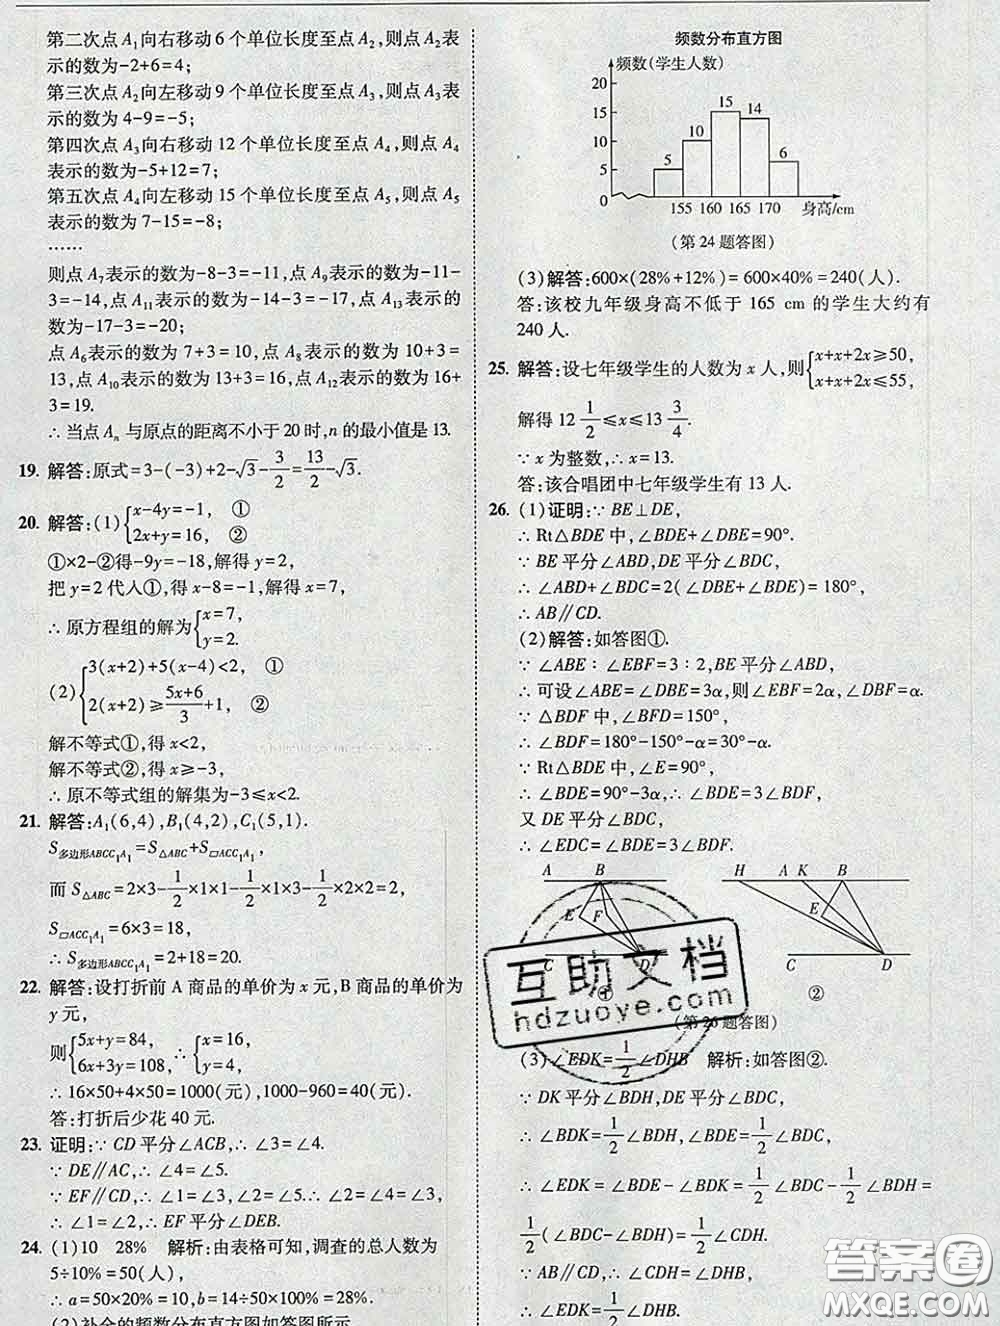 第二次点 A₁向右移动 6 个单位长度至点 A₂,则点 A₂表
示的数为-2+6=4;
第三次点 A₂向左移动 9 个单位长度至点 A₃,则点 A₃表
示的数为 4-9=-5;
第四次点 A₃向右移动 12 个单位长度至点 A₄,则点 A₄
表示的数为-5+12=7;
第五次点 A₄向左移动 15 个单位长度至点 A₅,则点 A₅
表示的数为 7-15=-8;
……
则点 A₇表示的数为-8-3=-11,点 A₉表示的数为-11-
3=-14,点 A₁₁表示的数为-14-3=-17,点 A₁₃表示的
数为-17-3=-20;
点 A₆表示的数为 7+3=10,点 A₈表示的数为 10+3=
13,点 A₁₀表示的数为 13+3=16,点 A₁₂表示的数为 16+
3=19.
∴ 当点 Aₙ 与原点的距离不小于 20 时,n 的最小值是 13.
19. 解答:原式=3-(-3)+2-√3-3/2=13/2-√3.
20. 解答:(1){x-4y=-1, ①
2x+y=16, ②
①×2-②得-9y=-18,解得 y=2,
把 y=2 代入①,得 x-8=-1,解得 x=7,
∴ 原方程组的解为{x=7,
y=2.
(2){3(x+2)+5(x-4)<2, ①
2(x+2)≥(5x+6)/3+1, ②
解不等式①,得 x<2,
解不等式②,得 x≥-3,
∴ 原不等式组的解集为-3≤x<2.
21. 解答:A₁(6,4),B₁(4,2),C₁(5,1).
S多边形ABCC₁A₁=S△ABC+S▱ACC₁A₁,
而 S△ABC=2×3-1/2×1×1-1/2×1×3-1/2×2×2=2,
S▱ACC₁A₁=6×3=18,
∴ S多边形ABCC₁A₁=2+18=20.
22. 解答:设打折前 A 商品的单价为 x 元,B 商品的单价为
y 元,
则{5x+y=84,
6x+3y=108, ∴{x=16,
y=4,
∴ 16×50+4×50=1000(元),1000-960=40(元).
答:打折后少花 40 元.
23. 证明:∵ CD 平分∠ACB,∴ ∠3=∠4.
∵ DE∥AC,∴ ∠4=∠5.
∵ EF∥CD,∴ ∠1=∠4,∠2=∠5.∴ ∠5=∠4=∠3,
∴ ∠1=∠2,∴ EF 平分∠DEB.
24. (1)10 28% 解析:由表格可知,调查的总人数为
5÷10%=50(人),
∴ a=50×20%=10,b=14÷50×100%=28%.
(2)补全的频数分布直方图如答图所示
频数分布直方图
频数(学生人数)
20
15
10
5
0
5
10
15
14
6
155 160 165 170 身高/cm
(第 24 题答图)
(3)解答:600×(28%+12%)=600×40%=240(人).
答:该校九年级身高不低于 165 cm 的学生大约有
240 人.
25. 解答:设七年级学生的人数为 x 人,则{x+x+2x≥50,
x+x+2x≤55,
解得 12 1/2≤x≤13 3/4.
∵ x 为整数,∴ x=13.
答:该合唱团中七年级学生有 13 人.
26. (1)证明:∵ BE⊥DE,
∴ Rt△BDE 中,∠BDE+∠DBE=90°.
∵ BE 平分∠ABD,DE 平分∠BDC,
∴ ∠ABD+∠BDC=2(∠DBE+∠BDE)=180°,
∴ AB∥CD.
(2)解答:如答图①.
∵ ∠ABE∶∠EBF=3∶2,BE 平分∠ABD,
∴ 可设∠ABE=∠DBE=3α,则∠EBF=2α,∠DBF=α.
∵ △BDF 中,∠BFD=150°,
∴ ∠BDF=180°-150°-α=30°-α.
∵ Rt△BDE 中,∠E=90°,
∴ ∠BDE=90°-3α,∴ ∠BDE=3∠BDF,
又 DE 平分∠BDC,
∴ ∠EDC=∠BDE=3∠BDF.
A B
E F
C D
①
H A K B
E
C D
②
(第 26 题答图)
互助文档
hdzuoye.com
(3)∠EDK=1/2∠DHB 解析:如答图②.
∵ DK 平分∠BDH,DE 平分∠BDC,
∴ ∠BDK=1/2∠BDH,∠BDE=1/2∠BDC,
∴ ∠EDK=∠BDE-∠BDK=1/2∠BDC-1/2∠BDH=
1/2(∠BDC-∠BDH)=1/2∠CDH.
∵ AB∥CD,∴ ∠CDH=∠DHB,
∴ ∠EDK=1/2∠DHB.
答案圈
MXQE.COM